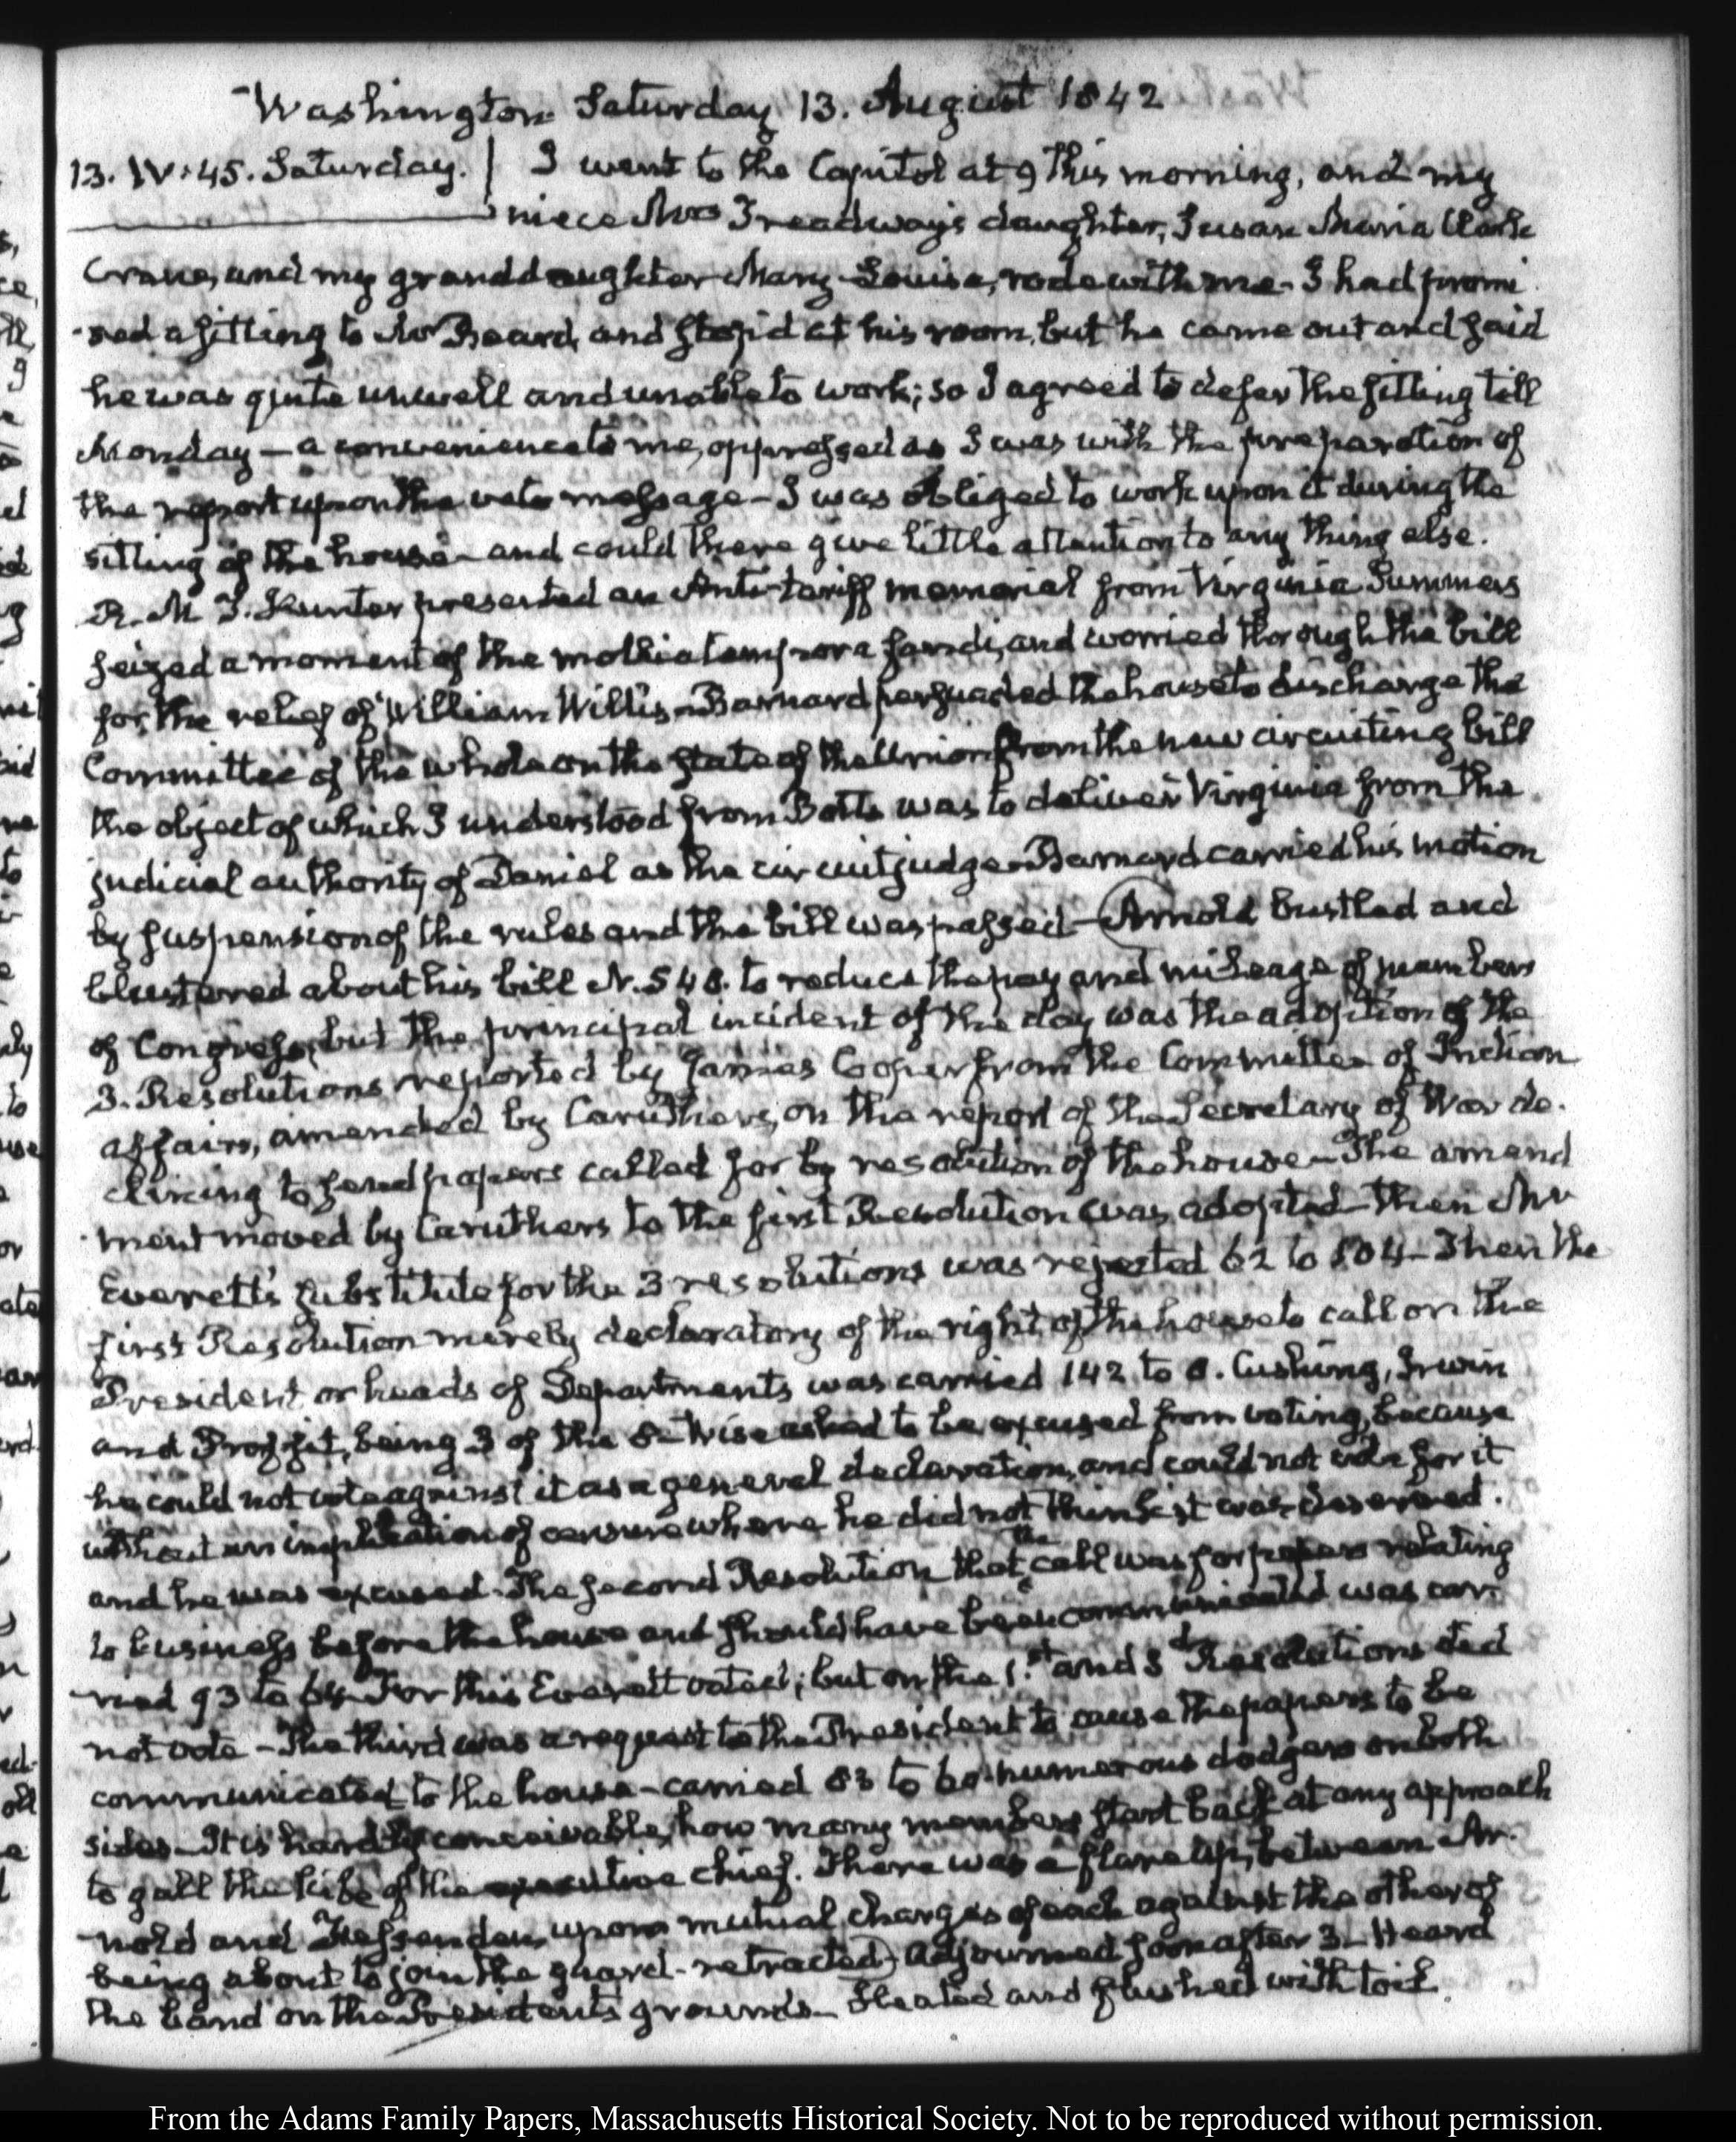 Washington Saturday 13. August 1842
13. IV:45. Saturday. | I went to the Capitol at 9 this morning, and my
niece Mrs Treadway's daughter, Susan Maria Clarke
Crane, and my granddaughter Mary-Louisa, rode with me- I had promi-
-sed a sitting to Mr Beard, and stop'd at his room, but he came out and said
he was quite unwell and unable to work; so I agreed to defer the sitting till
Monday — a convenience to me, oppressed as I was with the preparation of
the report upon the veto message - I was obliged to work upon it during the
sitting of the house - and could there give little attention to any thing else.
R. M T. Hunter presented an Anti-tariff memorial from Virginia Summers
seized a moment of the mollia tempora fandi, and worried thorough the bill
for the relief of William Willis - Barnard persuaded the house to discharge the
Committee of the whole on the state of the Union from the new circuiting bill
the object of which I understood from Botts was to deliver Virginia from the
judicial authority of Daniel as the circuit judge - Barnard carried his motion
by suspension of the rules and the bill was passed - Arnold bustled and
blustered about his bill N. 548. to reduce the pay and mileage of members
of Congress, but the principal incident of the day was the adoption of the
3. Resolutions reported by James Cooper from the Committee of Indian
affairs, amended by Caruthers, on the report of the Secretary of War de-
clining to send papers called for by resolution of the house - The amend
-ment moved by Caruthers to the first Resolution was adopted - then Mr
Everett's substitute for the 3 resolutions was rejected 62 to 104 - Then the
first Resolution merely declaratory of the right of the house to call on the
President or heads of Departments was carried 142 to 8. Cushing, Irwin
and Proffit, being 3 of the 8 - Wise asked to be excused from voting, because
he could not vote against it as a general declaration, and could not vote for it
without an implication of censure where he did not think it was deserved.
and he was excused - The second Resolution that the call was for papers relating
to business before the house and should have been communicated was car-
-ried 93 to 64 - For this Everett voted; but on the 1.st and 3d Resolutions did
not vote - The third was a request to the President to cause the papers to be
communicated to the house - carried 83 to 60. numerous dodgers on both
sides - It is hardly conceivable, how many members start back at any approach
to gall the kibe of the executive chief. There was a flare up, between Ar-
-nold and Fessenden, upon mutual charges of each against the other of
being about to join the guard - retracted - adjourned soon after 3 - Heard
the band on the Presidents grounds - Heated and flushed with toil.
From the Adams Family Papers, Massachusetts Historical Society. Not to be reproduced without permission.